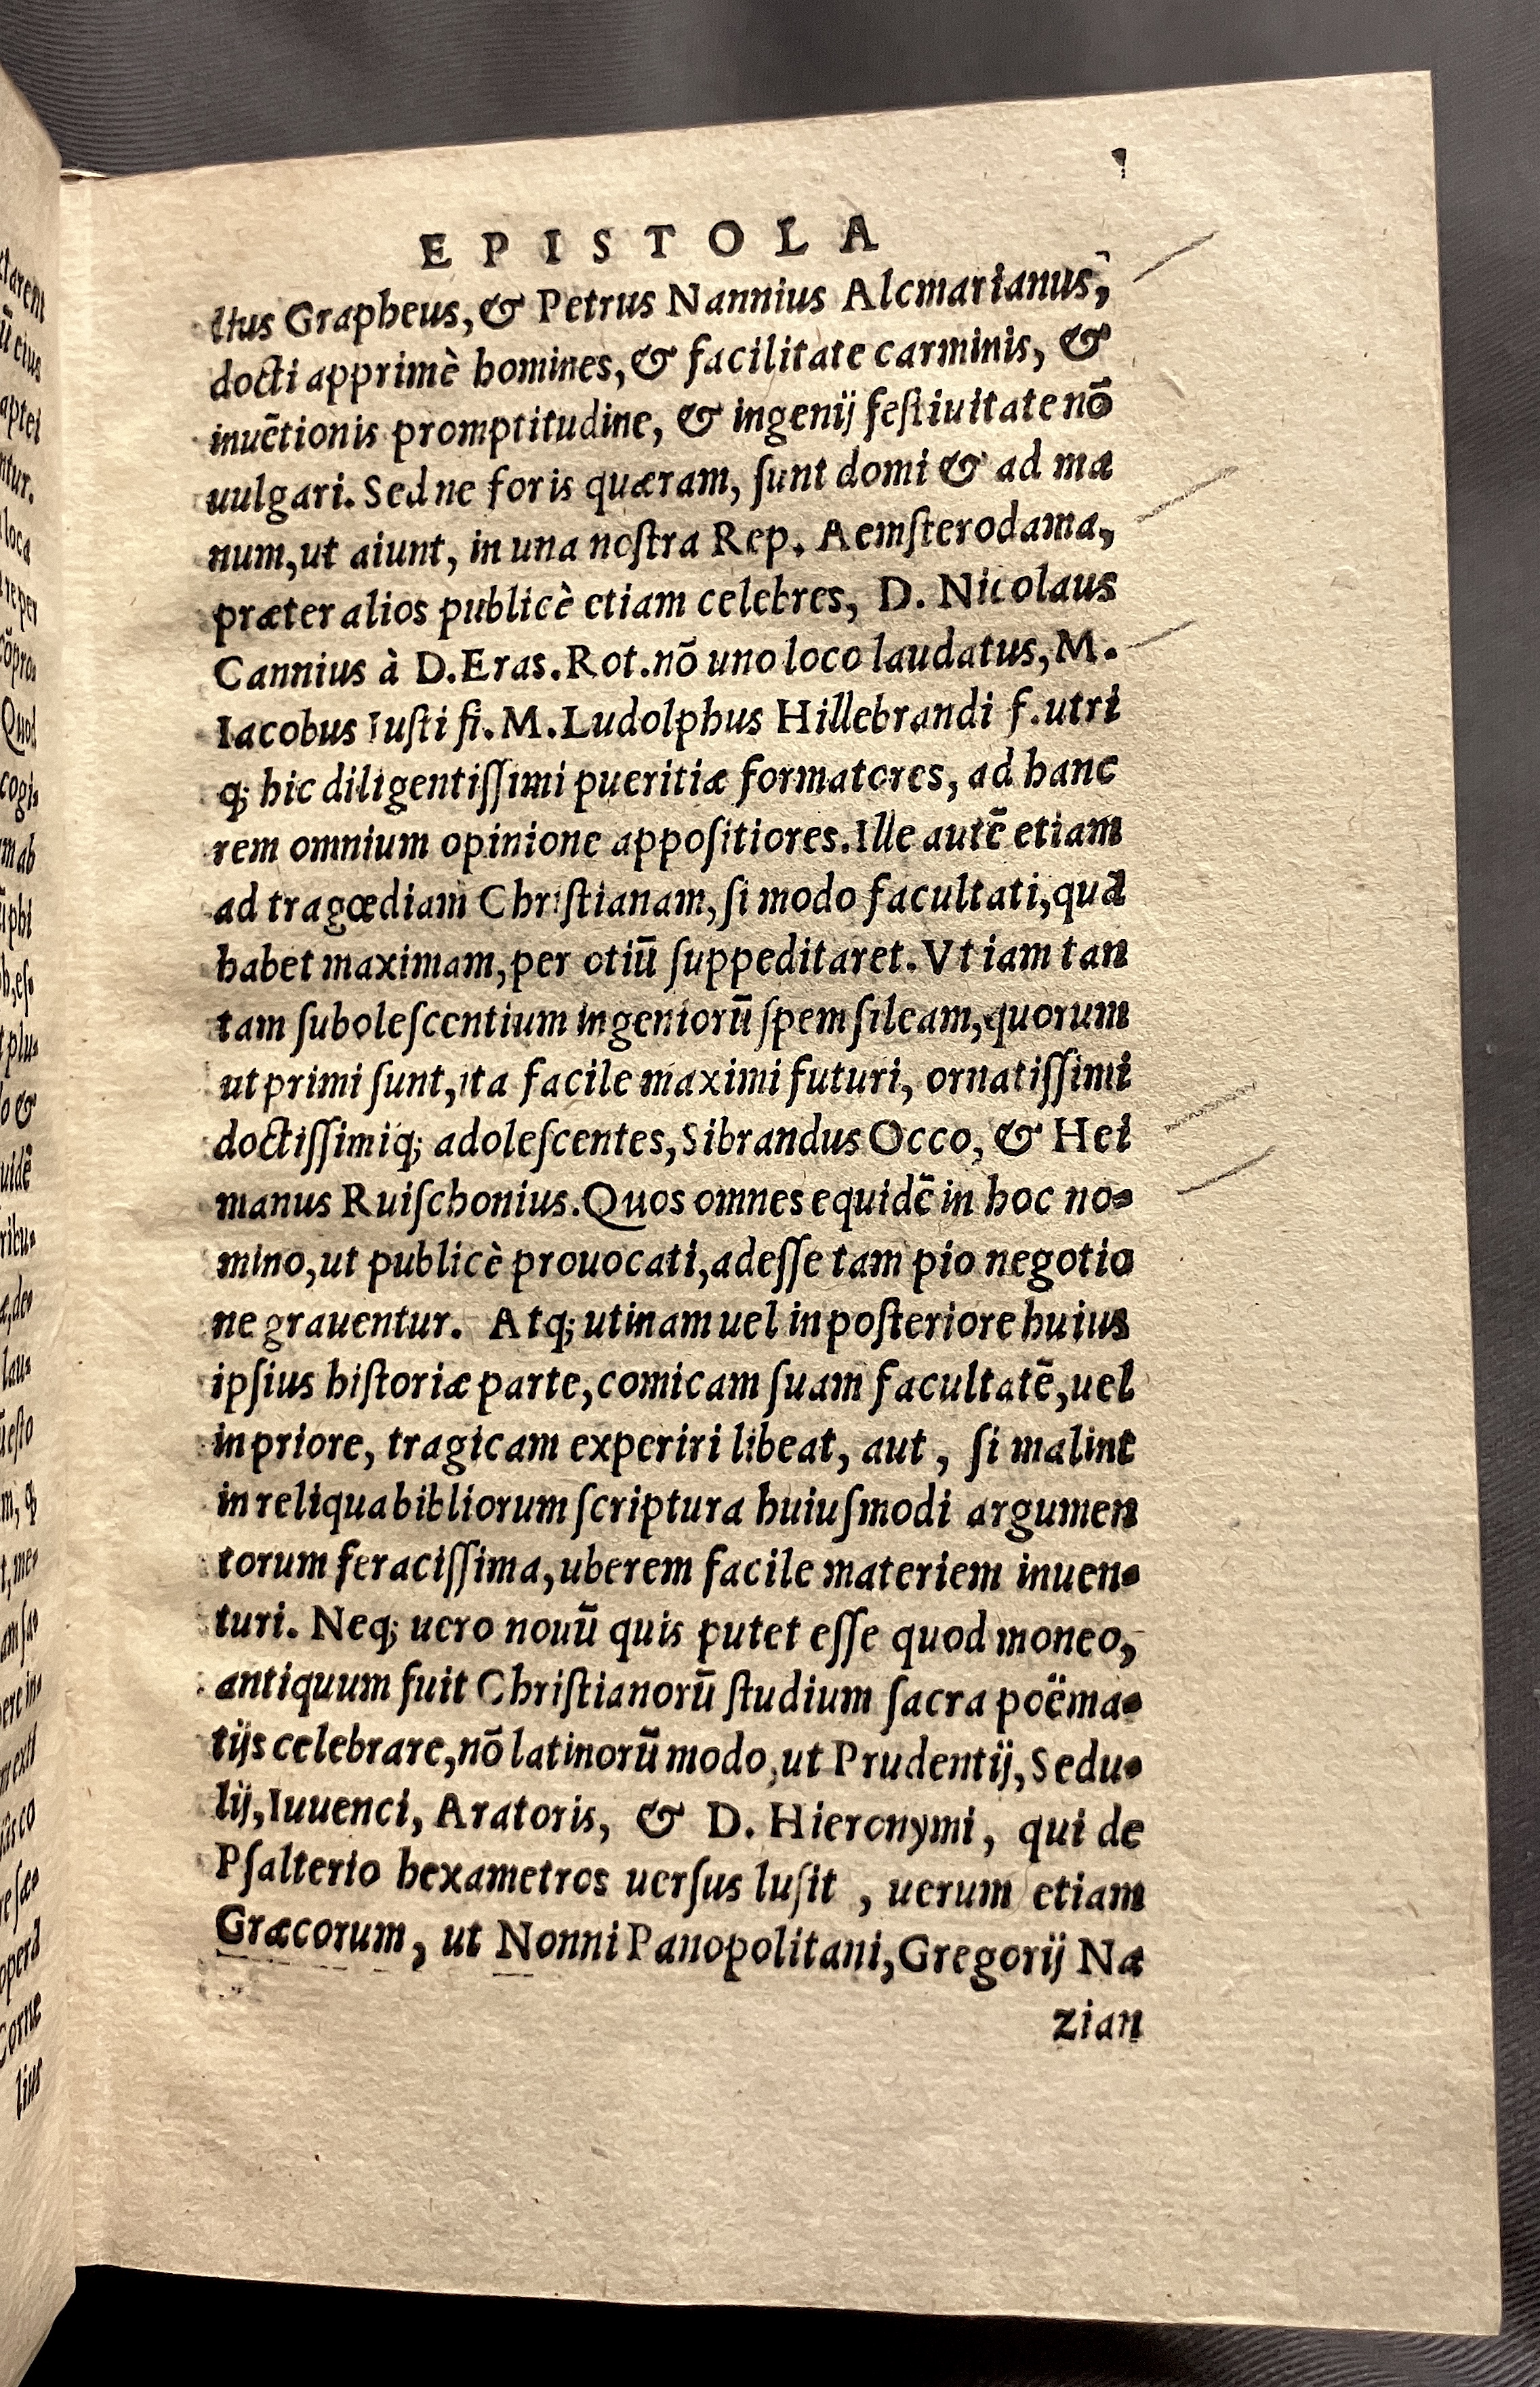 EPISTOLA
lius Grapheus, & Petrus Nannius Alcmarianus,
docti apprimè homines, & facilitate carminis, &
inuẽtionis promptitudine, & ingenij feſtiuitate nõ
uulgari. Sed ne foris quæram, ſunt domi & ad ma
num, ut aiunt, in una noſtra Rep. Aemſterodama,
præter alios publicè etiam celebres, D. Nicolaus
Cannius à D. Eras. Rot. nõ uno loco laudatus, M.
Iacobus Iuſti fi. M. Ludolphus Hillebrandi f. utri
q; hic diligentiſſimi pueritiæ formatores, ad hanc
rem omnium opinione appoſitiores. Ille autẽ etiam
ad tragœdiam Chriſtianam, ſi modo facultati, quã
habet maximam, per otiũ ſuppeditaret. Vt iam tan
tam ſuboleſcentium ingeniorũ ſpem ſileam, quorum
ut primi ſunt, ita facile maximi futuri, ornatiſſimi
doctiſſimiq; adoleſcentes, Sibrandus Occo, & Hei
manus Ruiſchonius. Quos omnes equidẽ in hoc no-
mino, ut publicè prouocati, adeſſe tam pio negotio
ne grauentur. Atq; utinam uel in poſteriore huius
ipſius hiſtoriæ parte, comicam ſuam facultatẽ, uel
in priore, tragicam experiri libeat, aut, ſi malint
in reliqua bibliorum ſcriptura huiuſmodi argumen
torum feraciſſima, uberem facile materiem inuen-
turi. Neq; uero nouũ quis putet eſſe quod moneo,
antiquum fuit Chriſtianorũ ſtudium ſacra poëma-
tijs celebrare, nõ latinorũ modo, ut Prudentij, Sedu-
lij, Iuuenci, Aratoris, & D. Hieronymi, qui de
Pſalterio hexametros uerſus luſit, uerum etiam
Græcorum, ut Nonni Panopolitani, Gregorij Na
zian